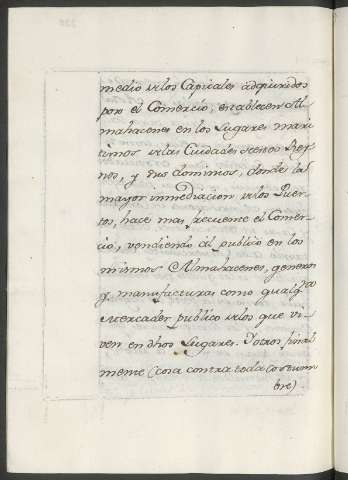 medio de los Capitales adqueridos
por el Comercio, establecen Al
mahacenes en los Lugares mari
timos de las Ciudades destos Rey
nos, y sus dominios, donde la
mayor inmediacion de los Puer
tos, hace mas frecuente el Comer
cio, vendiendo al publico en los
mismos Almahacenes, generos
y manufacturas como qualqa
Mercader publico de los que vi
ven en dhos Lugares. Y otros final
mente (cosa contra toda costum
bre)